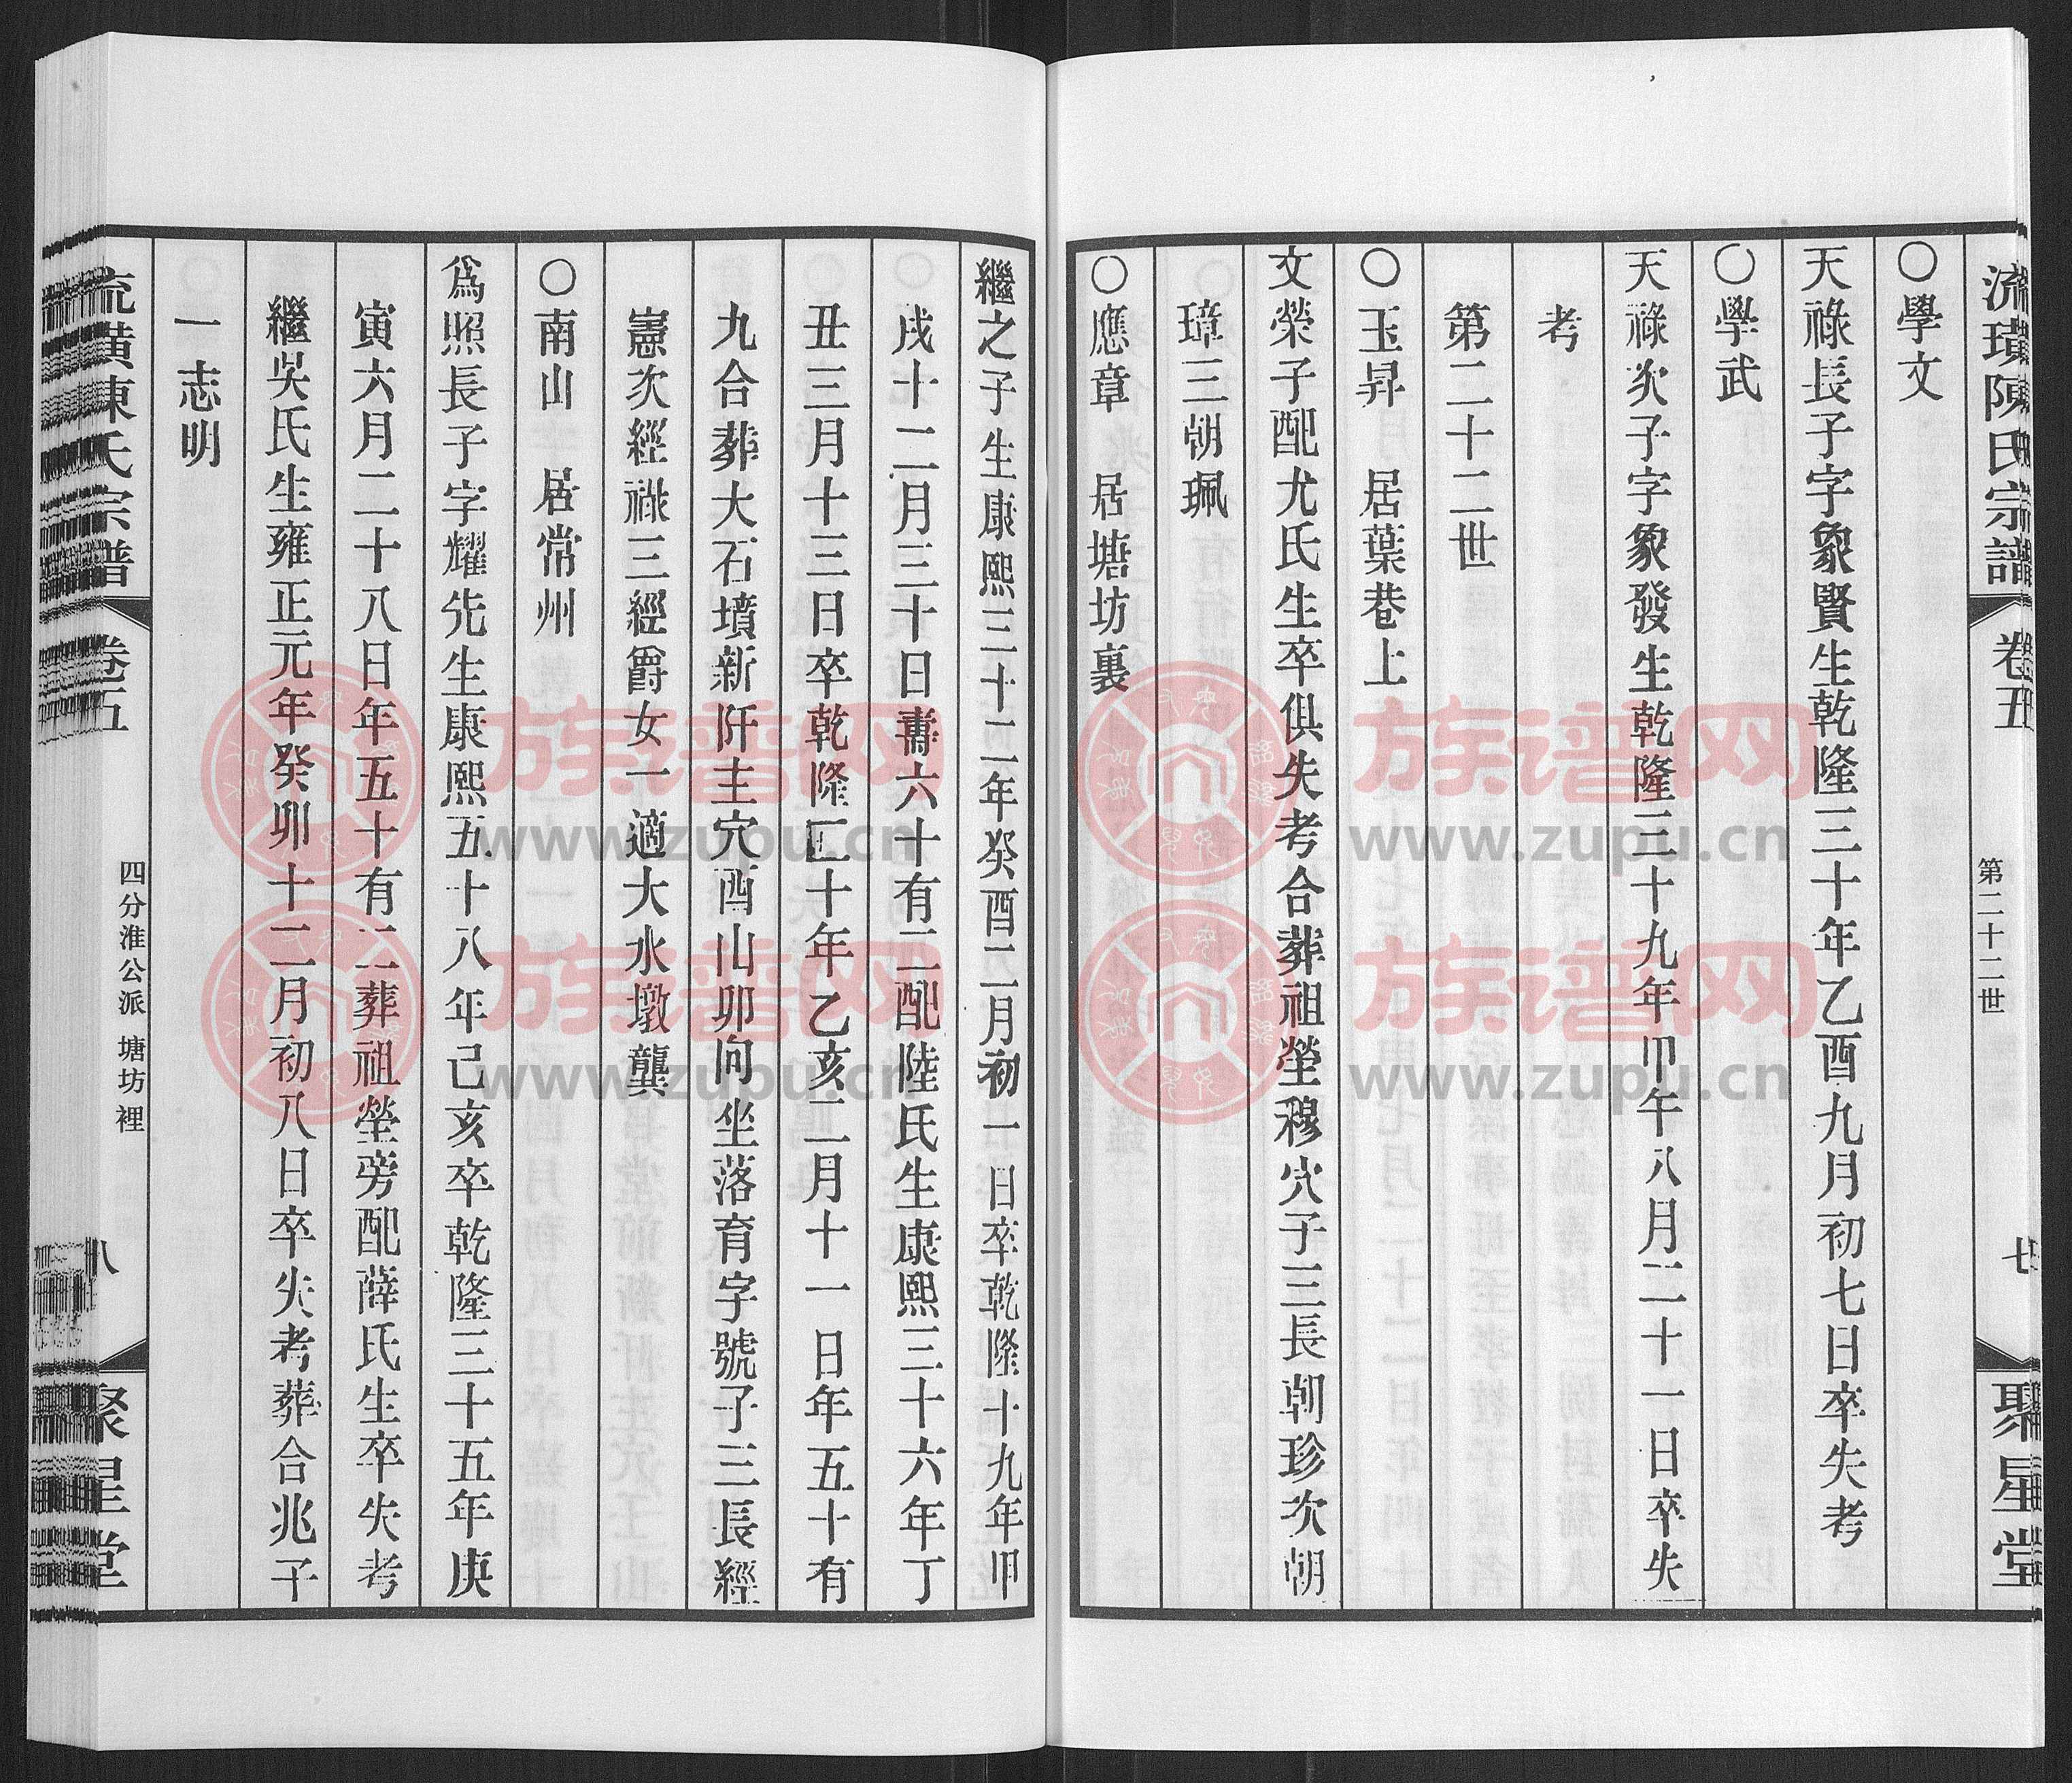 流璜陳氏宗譜 卷五 第二十二世 七 聚星堂
○學文
天祿長子字象賢生乾隆三十年乙酉九月初七日卒失考
○學武
天祿次子字象發生乾隆三十九年甲午八月二十一日卒失
考
第二十二世
○玉昇 居葉巷上
文榮子配尤氏生卒俱失考合葬祖塋穆穴子三長朝珍次朝
璋三朝珮
○應章 居塘坊裏
繼之子生康熙三十二年癸酉二月初一日卒乾隆十九年甲
戌十二月三十日壽六十有二配陸氏生康熙三十六年丁
丑三月十三日卒乾隆二十年乙亥二月十一日年五十有
九合葬大石墳新阡主穴酉山卯向坐落育字號子三長經
憲次經祿三經爵女一適大水墩龔
○南山 居常州
爲照長子字耀先生康熙五十八年己亥卒乾隆三十五年庚
寅六月二十八日年五十有二葬祖塋旁配薛氏生卒失考
繼吳氏生雍正元年癸卯十二月初八日卒失考葬合兆子
一志明
四分淮公派 塘坊裡
流璜陳氏宗譜 卷五 八 聚星堂
族谱网
www.zupu.cn
族谱网
www.zupu.cn
族谱网
www.zupu.cn
族谱网
www.zupu.cn